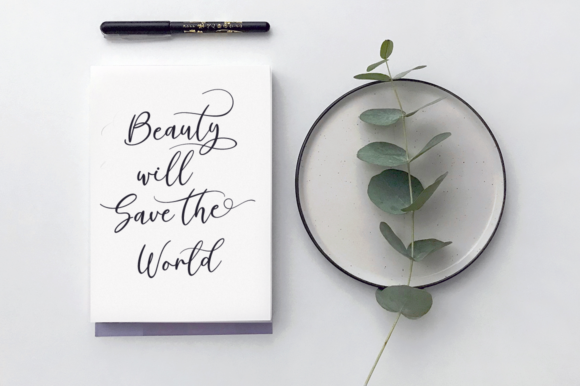 Beauty
will
Save the
World